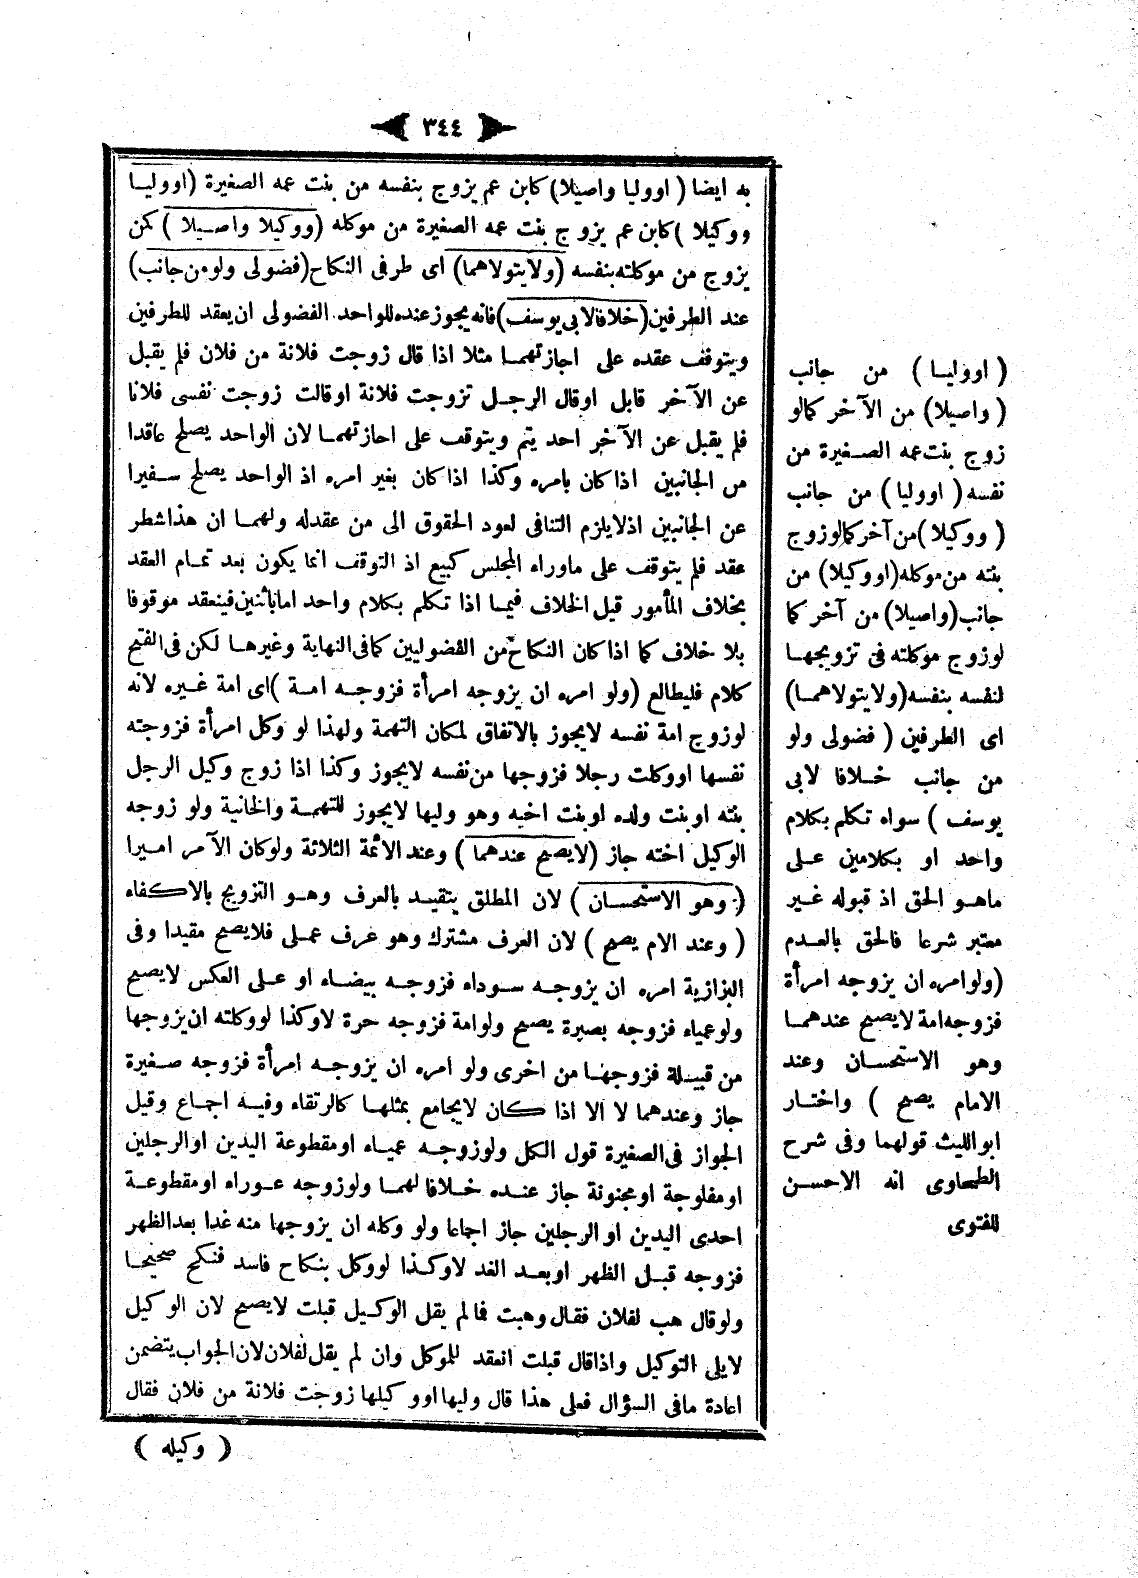 ٣٤٤
به ايضا ( اووليا واصيلا) كابن عم يزوج بنفسه من بنت عمه الصغيرة (اووليا
ووكيلا )كابن عم يزوج بنت عمه الصغيرة من موكله (ووكيلا واصيلا ) كمن
يزوج من موكلته بنفسه (ولايتولاهما) اى طرفى النكاح(فضولى ولومن جانب)
عند الطرفين(خلافالابى يوسف)فانه يجوز عنده للواحد الفضولى ان يعقد للطرفين
ويتوقف عقده على اجازتهما مثلا اذا قال زوجت فلانة من فلان فلم يقبل
عن الآخر قابل اوقال الرجل تزوجت فلانة اوقالت زوجت نفسى فلانا
فلم يقبل عن الآخر احد يتم ويتوقف على اجازتهما لان الواحد يصلح عاقدا
من الجانبين اذا كان بامره وكذا اذا كان بغير امره اذ الواحد يصلح سفيرا
عن الجانبين اذلايلزم التنافى لعود الحقوق الى من عقدله ولهما ان هذاشطر
عقد فلم يتوقف على ماوراء المجلس كبيع اذ التوقف انما يكون بعد تمام العقد
بخلاف المأمور قيل الخلاف فيما اذا تكلم بكلام واحد امابائنين فينعقد موقوفا
بلا خلاف كما اذا كان النكاح من الفضوليين كمافى النهاية وغيرها لكن فى الفتح
كلام فليطالع (ولو امره ان يزوجه امرأة فزوجه امة )اى امة غيره لانه
لوزوج امة نفسه لايجوز بالاتفاق لمكان التهمة ولهذا لو وكل امرأة فزوجته
نفسها اووكلت رجلا فزوجها من نفسه لايجوز وكذا اذا زوج وكيل الرجل
بنته او بنت ولده او بنت اخيه وهو وليها لايجوز للتهمة والخانية ولو زوجه
الوكيل اخته جاز (لايصح عندهما ) وعند الائمة الثلاثة ولوكان الآمر اميرا
( وهو الاستحسان ) لان المطلق يتقيد بالعرف وهو التزويج بالاكفاء
( وعند الام يصح ) لان العرف مشترك وهو عرف عملى فلايصح مقيدا وفى
البزازية امره ان يزوجه سوداء فزوجه بيضاء او على العكس لايصح
ولوعمياء فزوجه بصيرة يصح ولوامة فزوجه حرة لاوكذا لووكلته ان يزوجها
من قبيلة فزوجها من اخرى ولو امره ان يزوجه امرأة فزوجه صغيرة
جاز وعندهما لا الا اذا كان لايجامع بمثلها كالرتقاء وفيه اجماع وقيل
الجواز فى الصغيرة قول الكل ولوزوجه عمياء اومقطوعة اليدين اوالرجلين
اومفلوجة اومجنونة جاز عنده خلافا لهما ولوزوجه عوراء اومقطوعة
احدى اليدين او الرجلين جاز اجماعا ولو وكله ان يزوجها منه غدا بعدالظهر
فزوجه قبل الظهر اوبعد الغد لاوكذا لووكل بنكاح فاسد فنكح صحيحا
ولوقال هب لفلان فقال وهبت فمالم يقل الوكيل قبلت لايصح لان الوكيل
لايلى التوكيل واذاقال قبلت انعقد للموكل وان لم يقل لفلان لان الجواب يتضمن
اعادة مافى السؤال فعلى هذا قال وليها او وكيلها زوجت فلانة من فلان فقال
( وكيله )
( اووليا ) من جانب
( واصيلا) من الآخر كمالو
زوج بنت عمه الصغيرة من
نفسه ( اووليا ) من جانب
( ووكيلا )من آخر كمالوزوج
بنته من موكله(اووكيلا) من
جانب(واصيلا) من آخر كما
لوزوج موكلته فى تزويجها
لنفسه بنفسه(ولايتولاهما)
اى الطرفين ( فضولى ولو
من جانب خلافا لابى
يوسف ) سواء تكلم بكلام
واحد او بكلامين على
ماهو الحق اذ قبوله غير
معتبر شرعا فالحق بالعدم
(ولوامره ان يزوجه امرأة
فزوجه امة لايصح عندهما
وهو الاستحسان وعند
الامام يصح ) واختار
ابوالليث قولهما وفى شرح
الطحاوى انه الاحسن
للفتوى